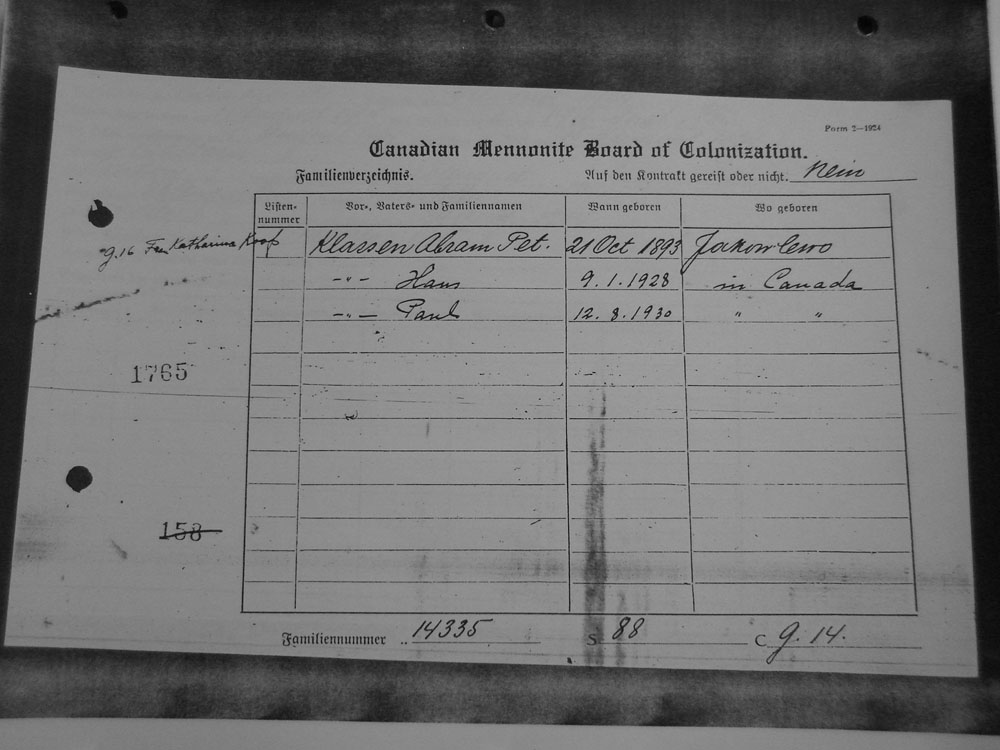 Form 2—1924
Canadian Mennonite Board of Colonization.
Familienverzeichnis. Auf den Kontrakt gereist oder nicht. Nein
Listen-nummer Vor-, Vaters- und Familiennamen Wann geboren Wo geboren
g.16 Frau Katharina Koop Klassen Abram Pet. 21 Oct 1893 Jakowlewo
-"- Hans 9.1.1928 in Canada
-"- Paul 12.8.1930 " "
1765
158
Familiennummer .. 14335 S 88 C g. 14.